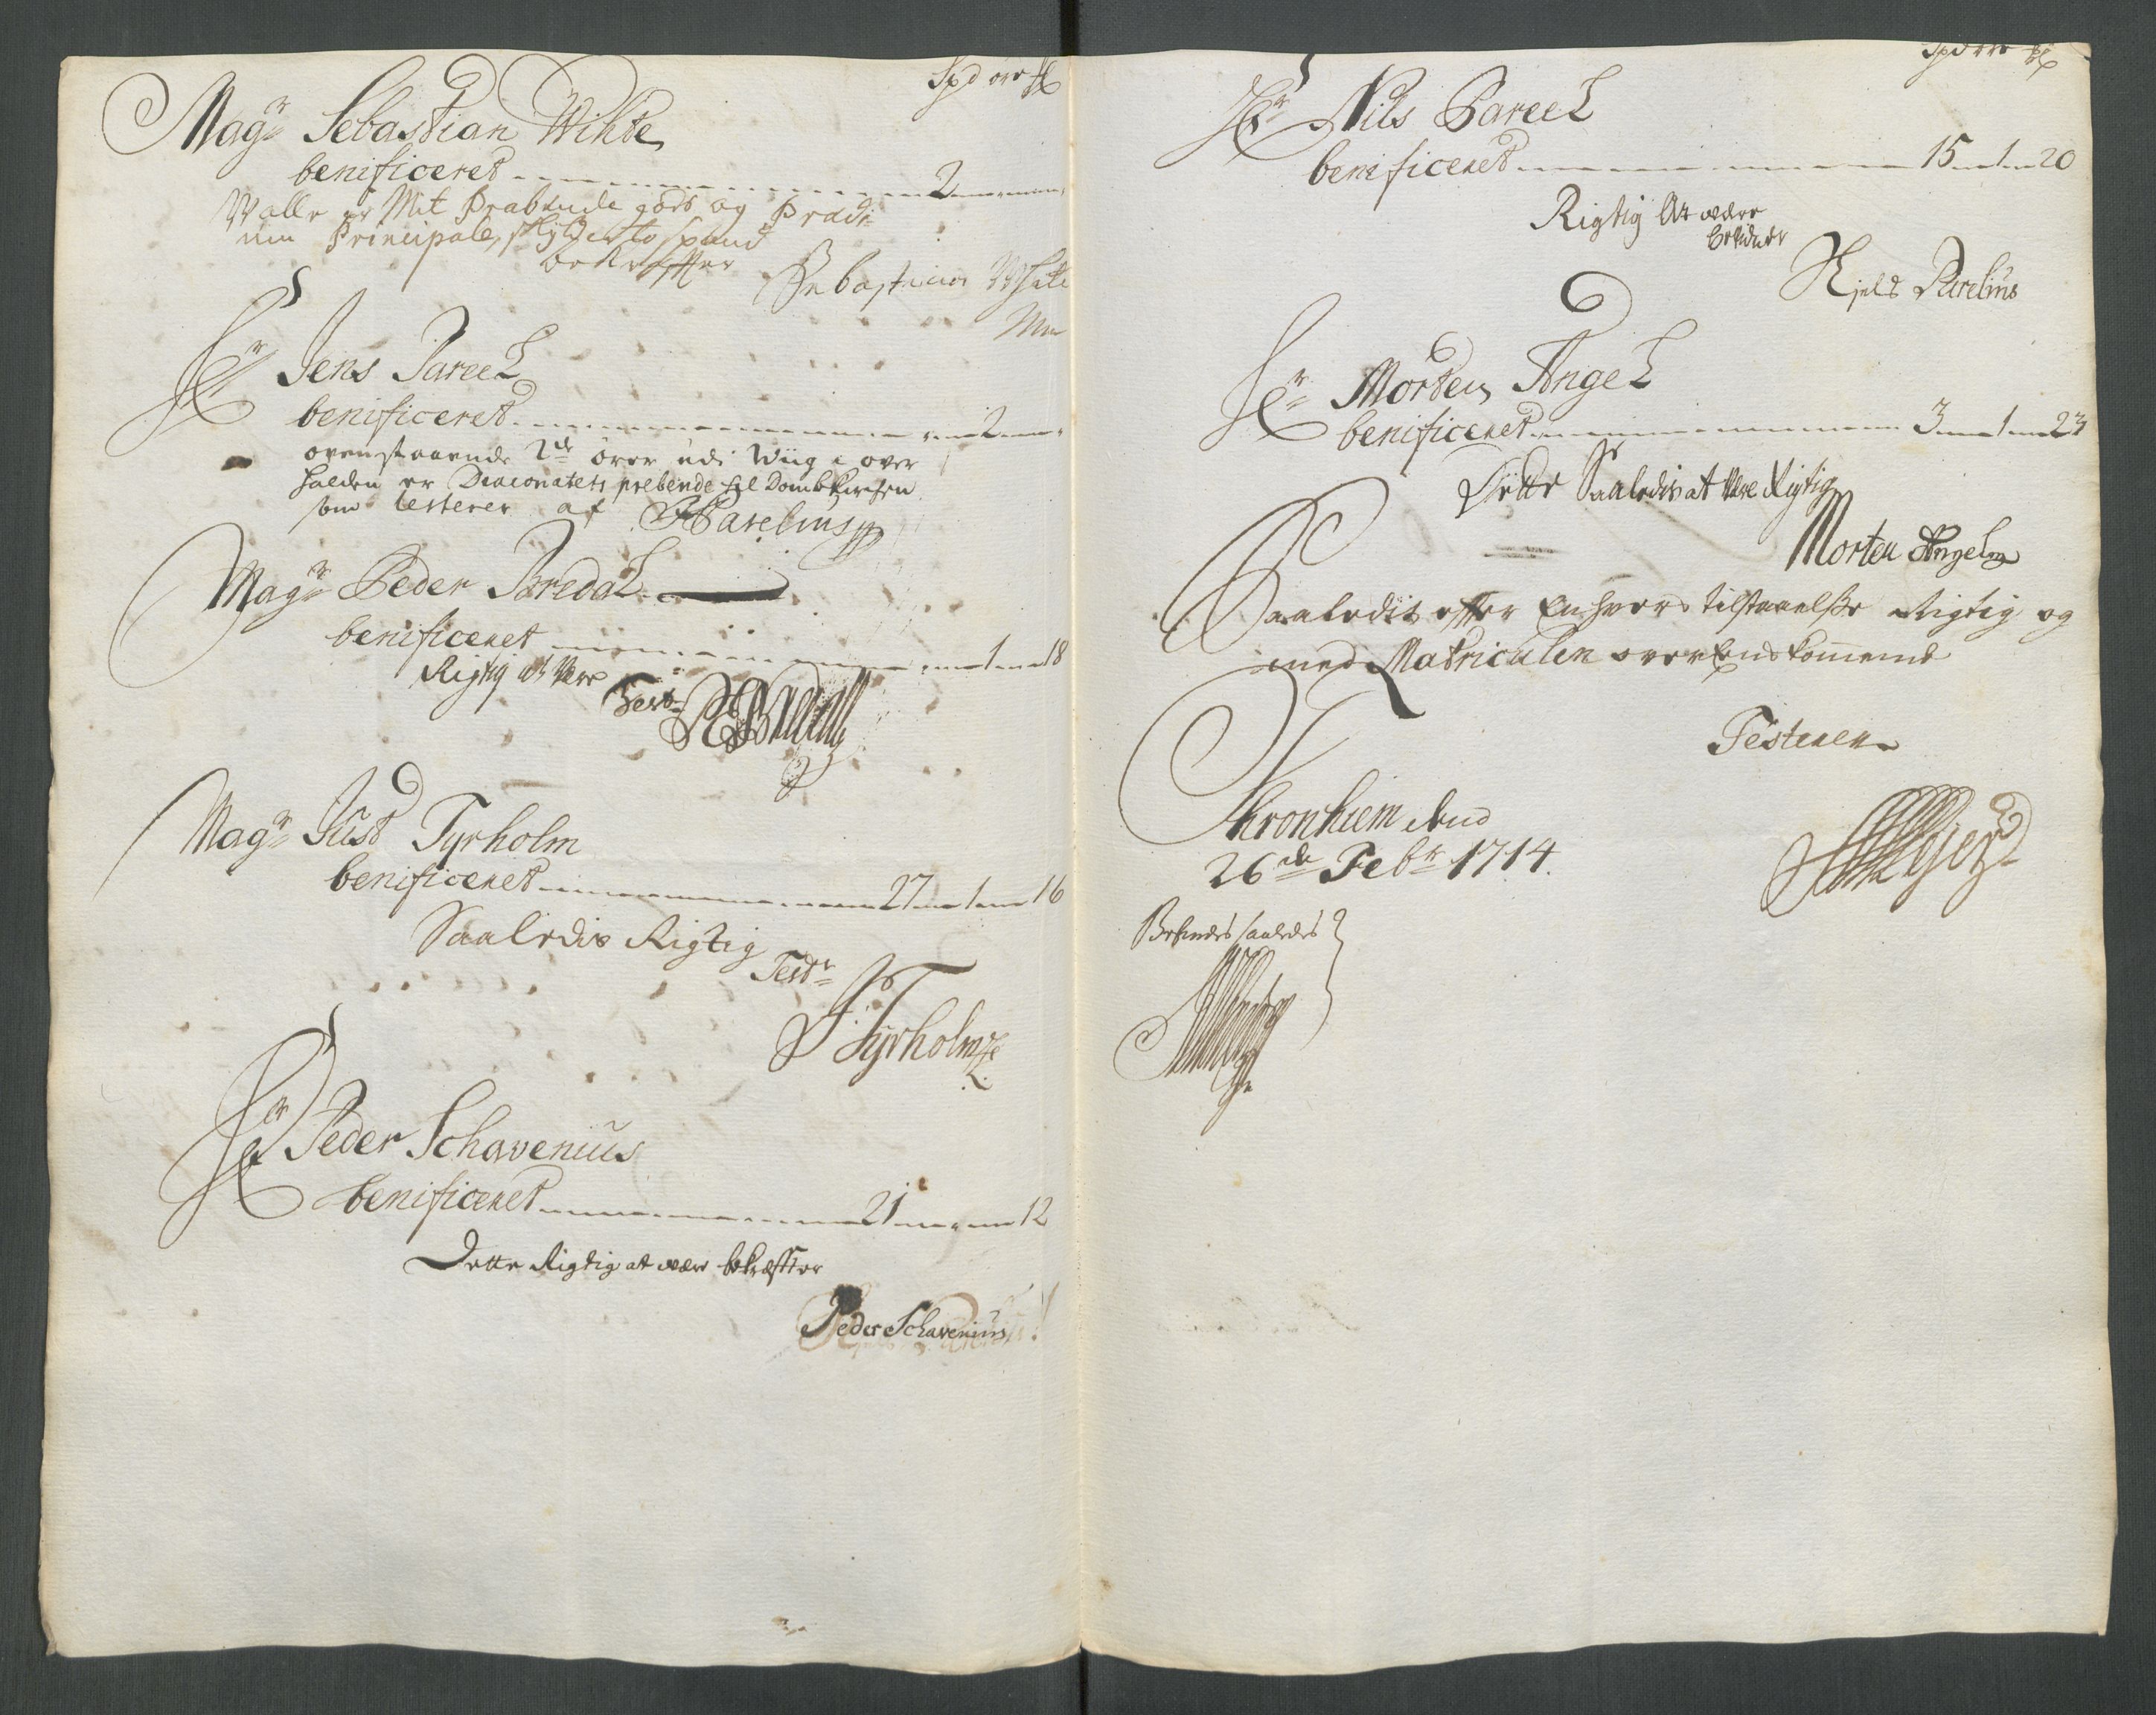 Spd ore
Mag.r Sebastian Wihte
benificeret 2
Walle er Mit Præbende gods og Prædi:
um Principale, skylder to spand
bekræffter
Sebastian White
Hr Jens Pareel
benificeret 2
ovenstaaende 2de ører udi Wiig i over
halden er Diaconatets prebende til Dombkirchen
som testerer af JParelius
Mag.r Peder Bredal
benificeret 1 18
Rigtig at Være
Test
PBredall
Mag.r Just Tyrholm
benificeret 27 1 16
Saaledis Rigtig
Testr
J. Tyrholm
Hr Peder Schavenius
benificeret 21 12
Dette Rigtig at være bekræffter
Peder Schavenius
Spd ore
Hr Nils Pareel
benificeret 15 1 20
Rigtig At være
bekiender
Njels Parelius
Hr Morten Angel
benificeret 3 1 23
Dette Saaledis at være Rigtig
Morten Angel
Saaledis effter Enhvers tilstaaelsse Rigtig og
med Matriculen overEnskommende
Testerer
Thronhiem dend
26de Febr 1714.
Befindes saaledes